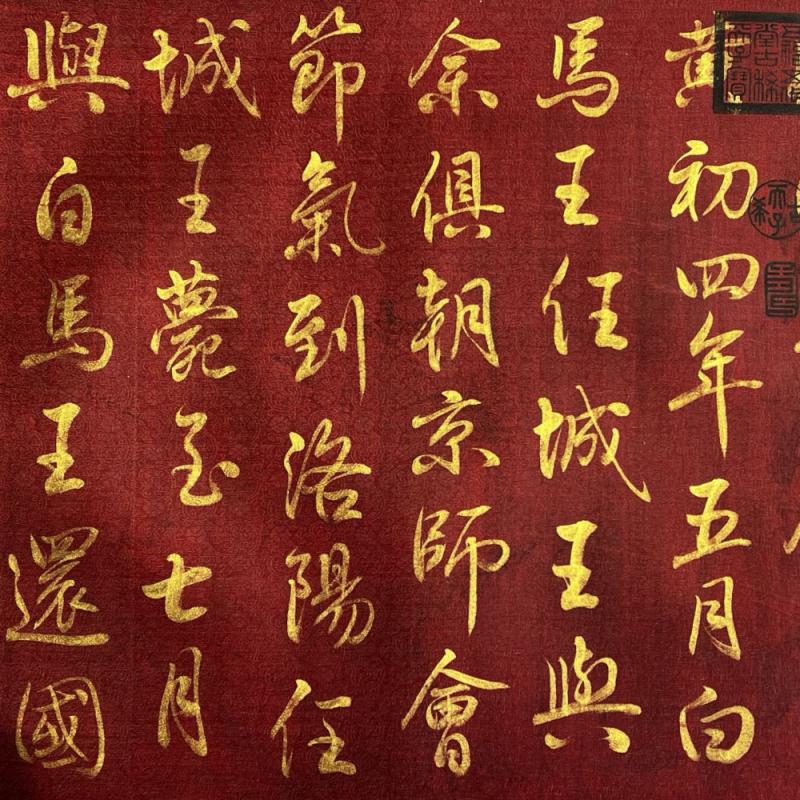 黄初四年五月白
馬王任城王與
余俱朝京師會
節氣到洛陽任
城王薨至七月
與白馬王還國